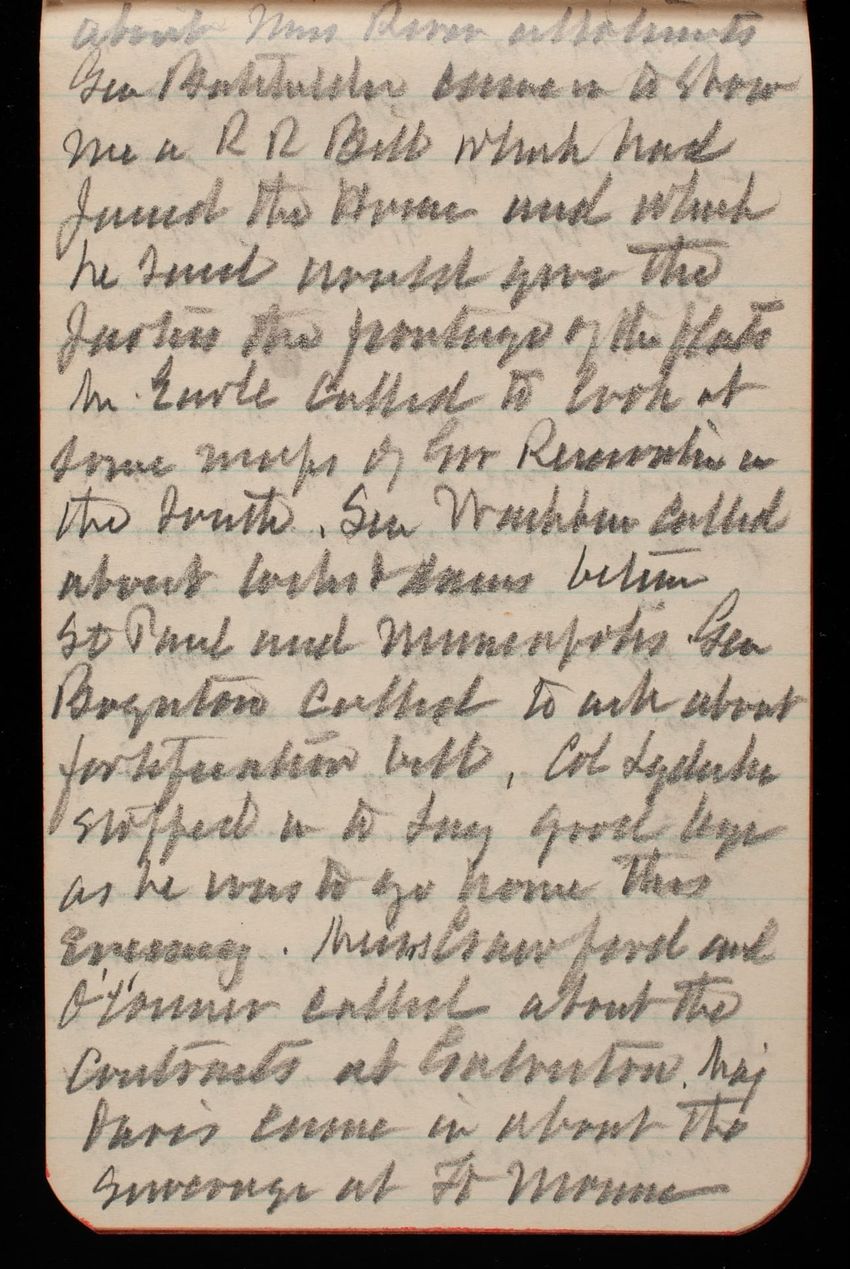 about Miss River allotments
Gen Batchelder came in to show
me a R R Bill which had
passed the House and which
he said would give the
the portage of the flats
Mr. Earle called to look at
some maps of Gov Reservation in
the South. Sen Washburn called
about locks & dams between
St Paul and Minneapolis. Gen
Boynton called to ask about
fortification bill, Col Lydecker
stopped in to say good bye
as he was to go home this
Evening. Messrs Crawford and
O'Connor called about the
Contracts at Galveston. Maj
Davis came in about the
Sewerage at Ft Monroe